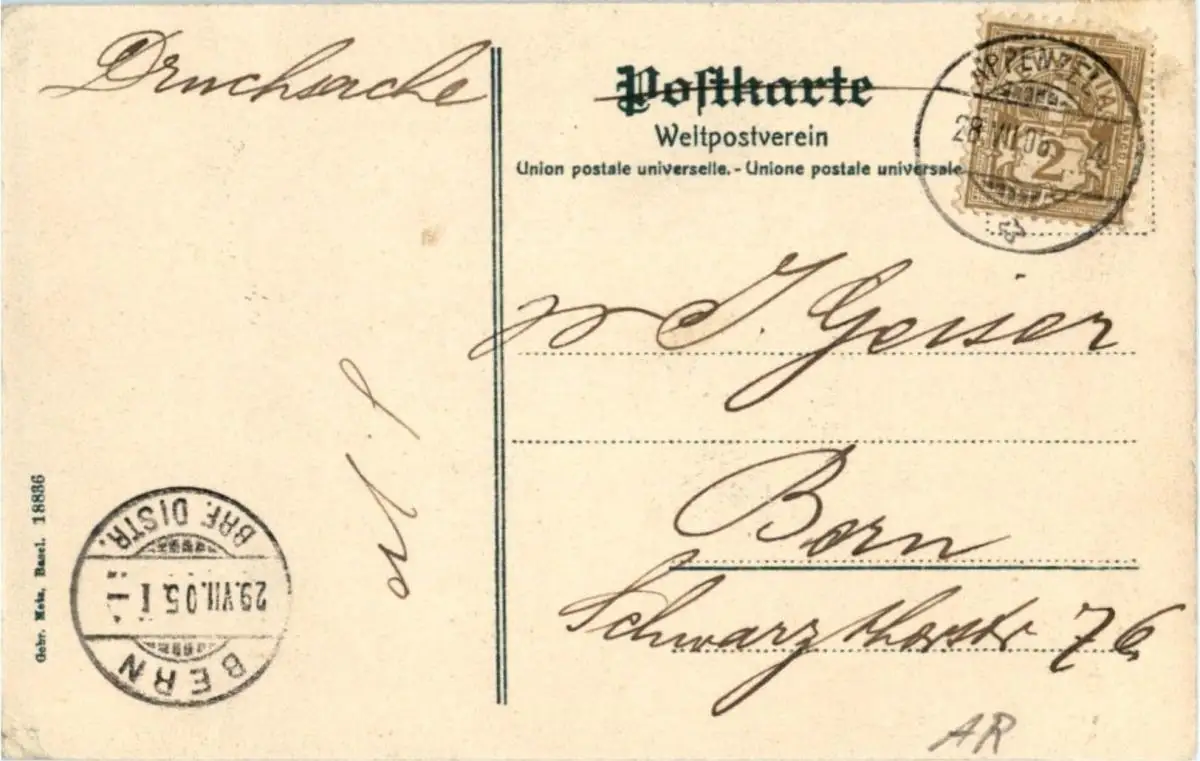 Drucksache
Postkarte
Weltpostverein
Union postale universelle. - Unione postale universale
APPENZELL
28.VII.05
2
J. Geiser
Bern
Schwarzthorstr 76
Gebr. Metz, Basel. 18836
BRF. DISTR.
29.VII.05.I
BERN
AR